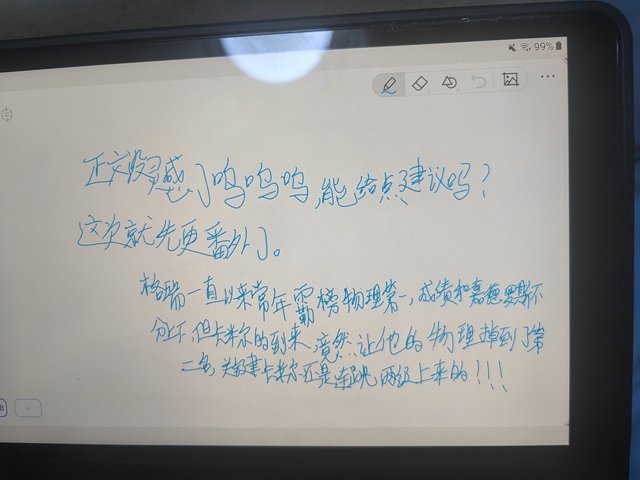 99%
正文没灵感了呜呜呜,能给点建议吗?
这次就先更番外了。
格瑞一直以来常年霸榜物理第一,成绩和嘉德罗斯不
分上下,但卡米尔的到来,竟然让他的物理掉到了第
二名,关键卡米尔还是连跳两级上来的!!!